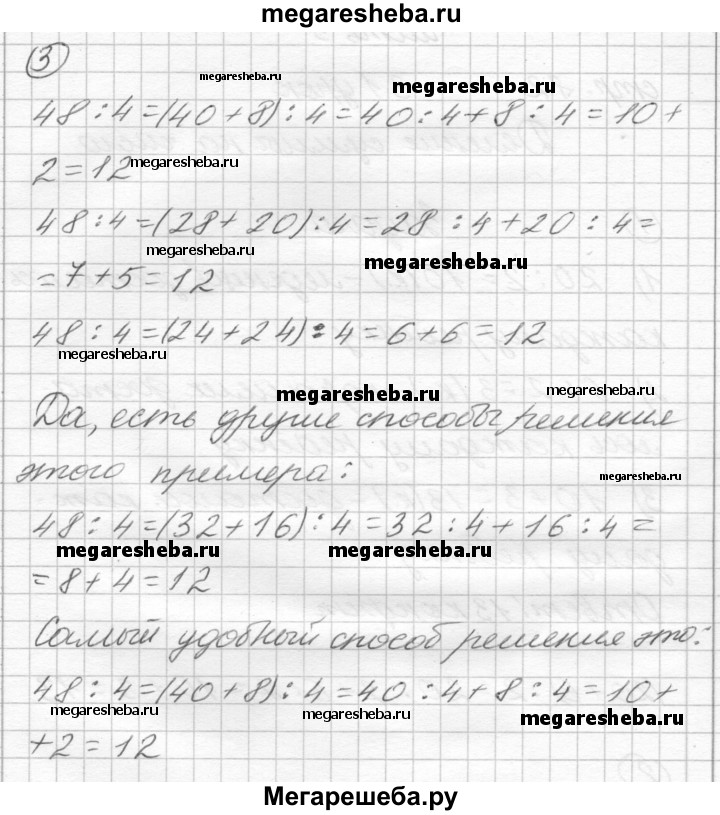 megaresheba.ru
3
megaresheba.ru
megaresheba.ru
48 : 4 = (40 + 8) : 4 = 40 : 4 + 8 : 4 = 10 +
2 = 12
megaresheba.ru
48 : 4 = (28 + 20) : 4 = 28 : 4 + 20 : 4 =
megaresheba.ru
megaresheba.ru
= 7 + 5 = 12
48 : 4 = (24 + 24) : 4 = 6 + 6 = 12
megaresheba.ru
megaresheba.ru
megaresheba.ru
Да, есть другие способы решения
этого примера:
megaresheba.ru
48 : 4 = (32 + 16) : 4 = 32 : 4 + 16 : 4 =
megaresheba.ru
megaresheba.ru
= 8 + 4 = 12
Самый удобный способ решения это:
48 : 4 = (40 + 8) : 4 = 40 : 4 + 8 : 4 = 10 +
megaresheba.ru
megaresheba.ru
megaresheba.ru
+ 2 = 12
Мегарешеба.ру